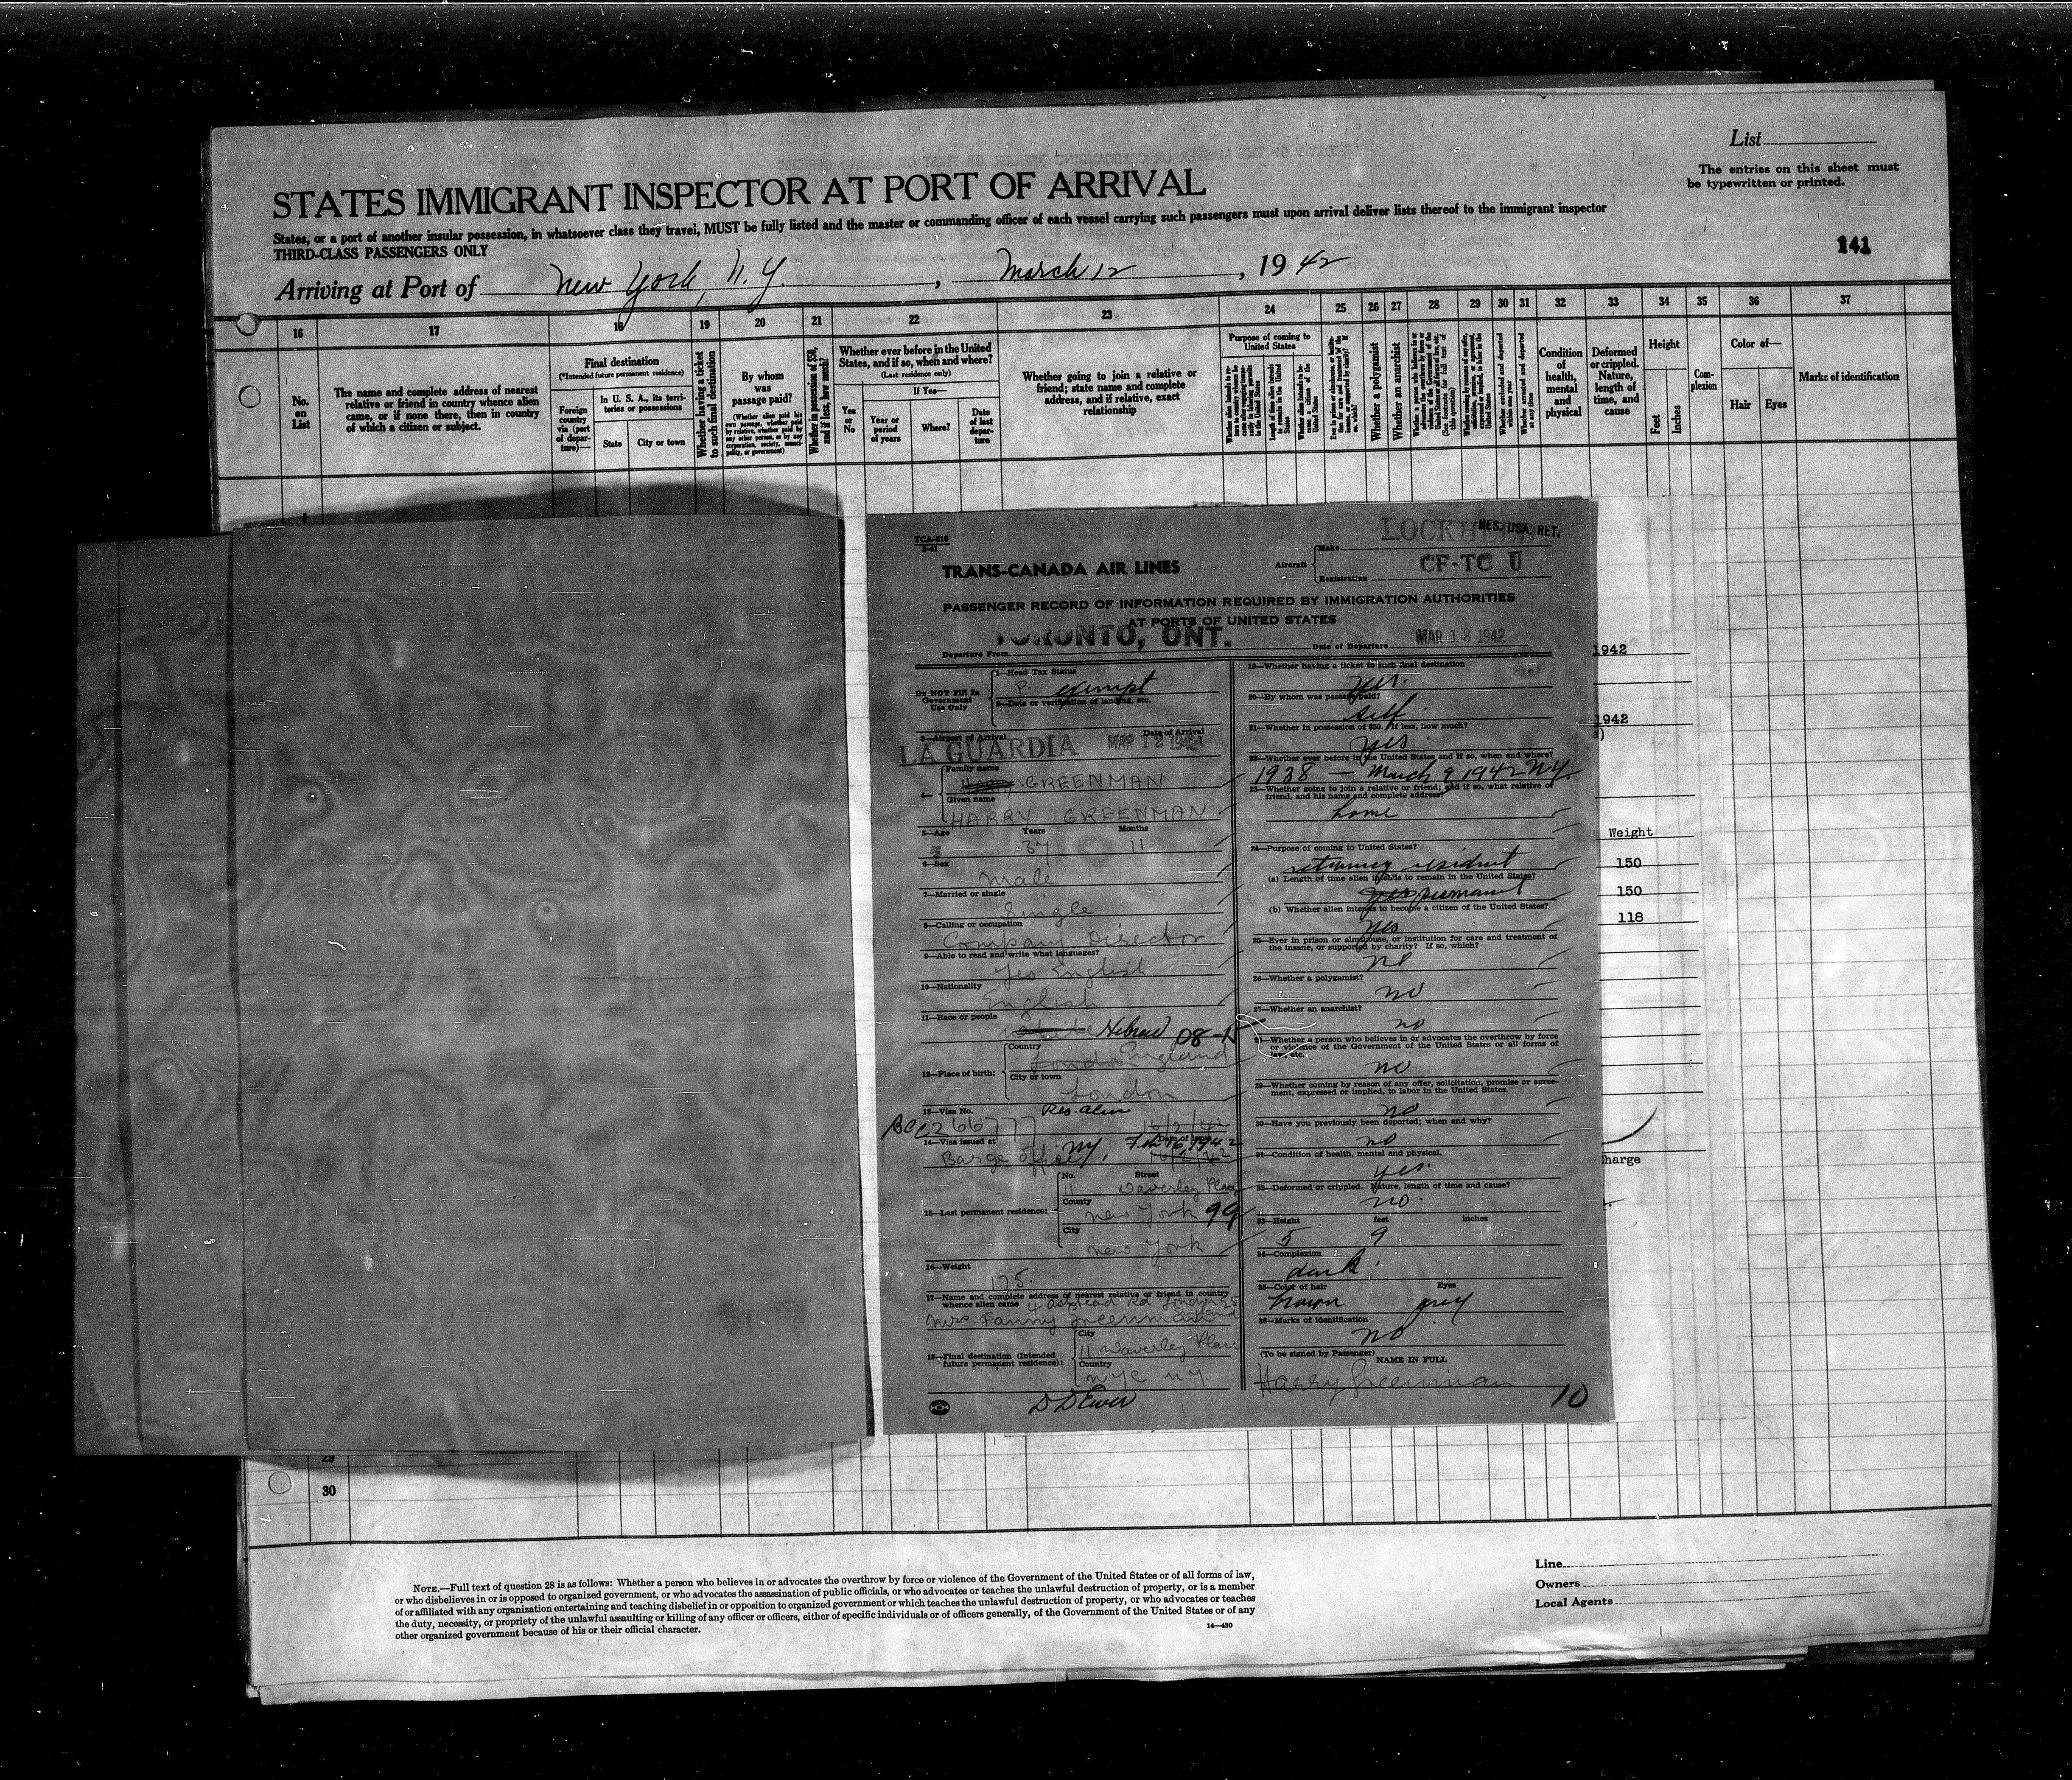 List
The entries on this sheet must
be typewritten or printed.
STATES IMMIGRANT INSPECTOR AT PORT OF ARRIVAL
States, or a port of another insular possession, in whatsoever class they travel, MUST be fully listed and the master or commanding officer of each vessel carrying such passengers must upon arrival deliver lists thereof to the immigrant inspector
THIRD-CLASS PASSENGERS ONLY
141
Arriving at Port of New York, N.Y. , March 12 , 19 42
16 17 18 19 20 21 22 23 24 25 26 27 28 29 30 31 32 33 34 35 36 37
No.
on
List
The name and complete address of nearest
relative or friend in country whence alien
came, or if none there, then in country
of which a citizen or subject.
Final destination
(*Intended future permanent residence)
Foreign
country
via (port
of depar-
ture)—
In U. S. A., its terri-
tories or possessions
State
City or town
Whether having a ticket
to such final destination
By whom
was
passage paid?
(Whether alien paid his
own passage, whether paid
by relative, whether paid by
any other person, or by any
corporation, society, munici-
pality, or government)
Whether in possession of $50,
and if less, how much?
Whether ever before in the United
States, and if so, when and where?
(Last residence only)
If Yes—
Yes
or
No
Year or
period
of years
Where?
Date
of last
depar-
ture
Whether going to join a relative or
friend; state name and complete
address, and if relative, exact
relationship
Purpose of coming to
United States
Whether a polygamist
Whether an anarchist
Condition
of
health,
mental
and
physical
Deformed
or crippled.
Nature,
length of
time, and
cause
Height
Feet
Inches
Com-
plexion
Color of—
Hair
Eyes
Marks of identification
TCA-316
TRANS-CANADA AIR LINES
Aircraft
Make
LOCKH
RES. USA. RET.
Registration
CF-TC U
PASSENGER RECORD OF INFORMATION REQUIRED BY IMMIGRATION AUTHORITIES
AT PORTS OF UNITED STATES
Departure From TORONTO, ONT.
Date of Departure MAR 12 1942
Do NOT Fill In
Government
Use Only
1—Head Tax Status
P. exempt
2—Data or verification of landing, etc.
3—Airport of Arrival
Date of Arrival
LA GUARDIA MAR 12 1942
4—
Family name
GREENMAN
Given name
HARRY GREENMAN
5—Age Years Months
37 11
6—Sex
Male
7—Married or single
Single
8—Calling or occupation
Company Director
9—Able to read and write what languages?
Yes English
10—Nationality
English
11—Race or people
Hebrew 08-N
12—Place of birth:
Country
England
City or town
London
13—Visa No.
Res. alien
14—Visa issued at
Date of Issue
Barge Office NY. Feb 16 1942
15—Last permanent residence:
No. Street
11 Waverley Place
County
New York 99
City
New York
16—Weight
175.
17—Name and complete address of nearest relative or friend in country
whence alien came
Mrs Fanny Greenman
18—Final destination (Intended
future permanent residence):
City
11 Waverley Place
Country
NYC N.Y.
19—Whether having a ticket to such final destination
yes.
20—By whom was passage paid?
self
21—Whether in possession of $50. If less, how much?
yes
22—Whether ever before in the United States and if so, when and where?
1938 — March 9 1942 NY.
23—Whether going to join a relative or friend; and if so, what relative or
friend, and his name and complete address?
home
24—Purpose of coming to United States?
returning resident
(a) Length of time alien intends to remain in the United States?
permanent
(b) Whether alien intends to become a citizen of the United States?
Yes
25—Ever in prison or almshouse, or institution for care and treatment of
the insane, or supported by charity? If so, which?
no
26—Whether a polygamist?
no
27—Whether an anarchist?
no
28—Whether a person who believes in or advocates the overthrow by force
or violence of the Government of the United States or all forms of
law, etc.
no
29—Whether coming by reason of any offer, solicitation, promise or agree-
ment, expressed or implied, to labor in the United States.
no
30—Have you previously been deported; when and why?
no
31—Condition of health, mental and physical.
yes.
32—Deformed or crippled. Nature, length of time and cause?
no.
33—Height feet inches
5 9
34—Complexion
dark
35—Color of hair Eyes
brown grey
36—Marks of identification
no
(To be signed by Passenger)
NAME IN FULL
Harry Greenman
10
1942
1942
Weight
150
150
118
harge
29
30
NOTE.—Full text of question 28 is as follows: Whether a person who believes in or advocates the overthrow by force or violence of the Government of the United States or of all forms of law,
or who disbelieves in or is opposed to organized government, or who advocates the assassination of public officials, or who advocates or teaches the unlawful destruction of property, or is a member
of or affiliated with any organization entertaining and teaching disbelief in or opposition to organized government or which teaches the unlawful destruction of property, or who advocates or teaches
the duty, necessity, or propriety of the unlawful assaulting or killing of any officer or officers, either of specific individuals or of officers generally, of the Government of the United States or of any
other organized government because of his or their official character.
14—430
Line
Owners
Local Agents